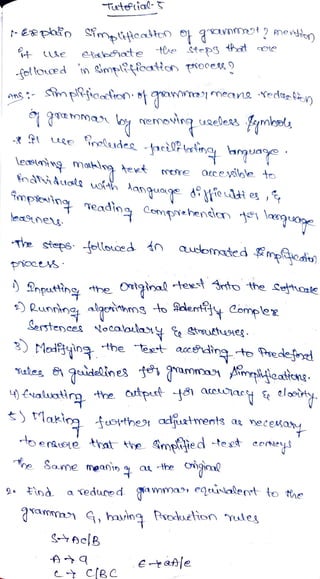 Tutorial-5
1. Explain Simplification of grammar? mention
it use elaborate the steps that are
followed in simplification process?
ans:- Simplification of grammar means reduction
of grammar by removing useless symbols
* It use includes facilitating language
learning making text more accessible to
individuals with language difficulties, &
improving reading comprehension for language
learners.
The steps followed in automated simplification
process.
1) Inputting the original text into the software
2) Running algorithms to identify complex
Sentences vocabulary & structures.
3) Modifying the Text according to Predefined
rules or guidelines for grammar simplifications.
4) Evaluating the output for accuracy & clarity.
5) Making further adjustments as necessary
to ensure that the simplified text conveys
the Same meaning as the original
2. Find a reduced grammar equivalent to the
grammar G, having Production rules
S→AC/B
A→a
C→C/BC E→aA/e